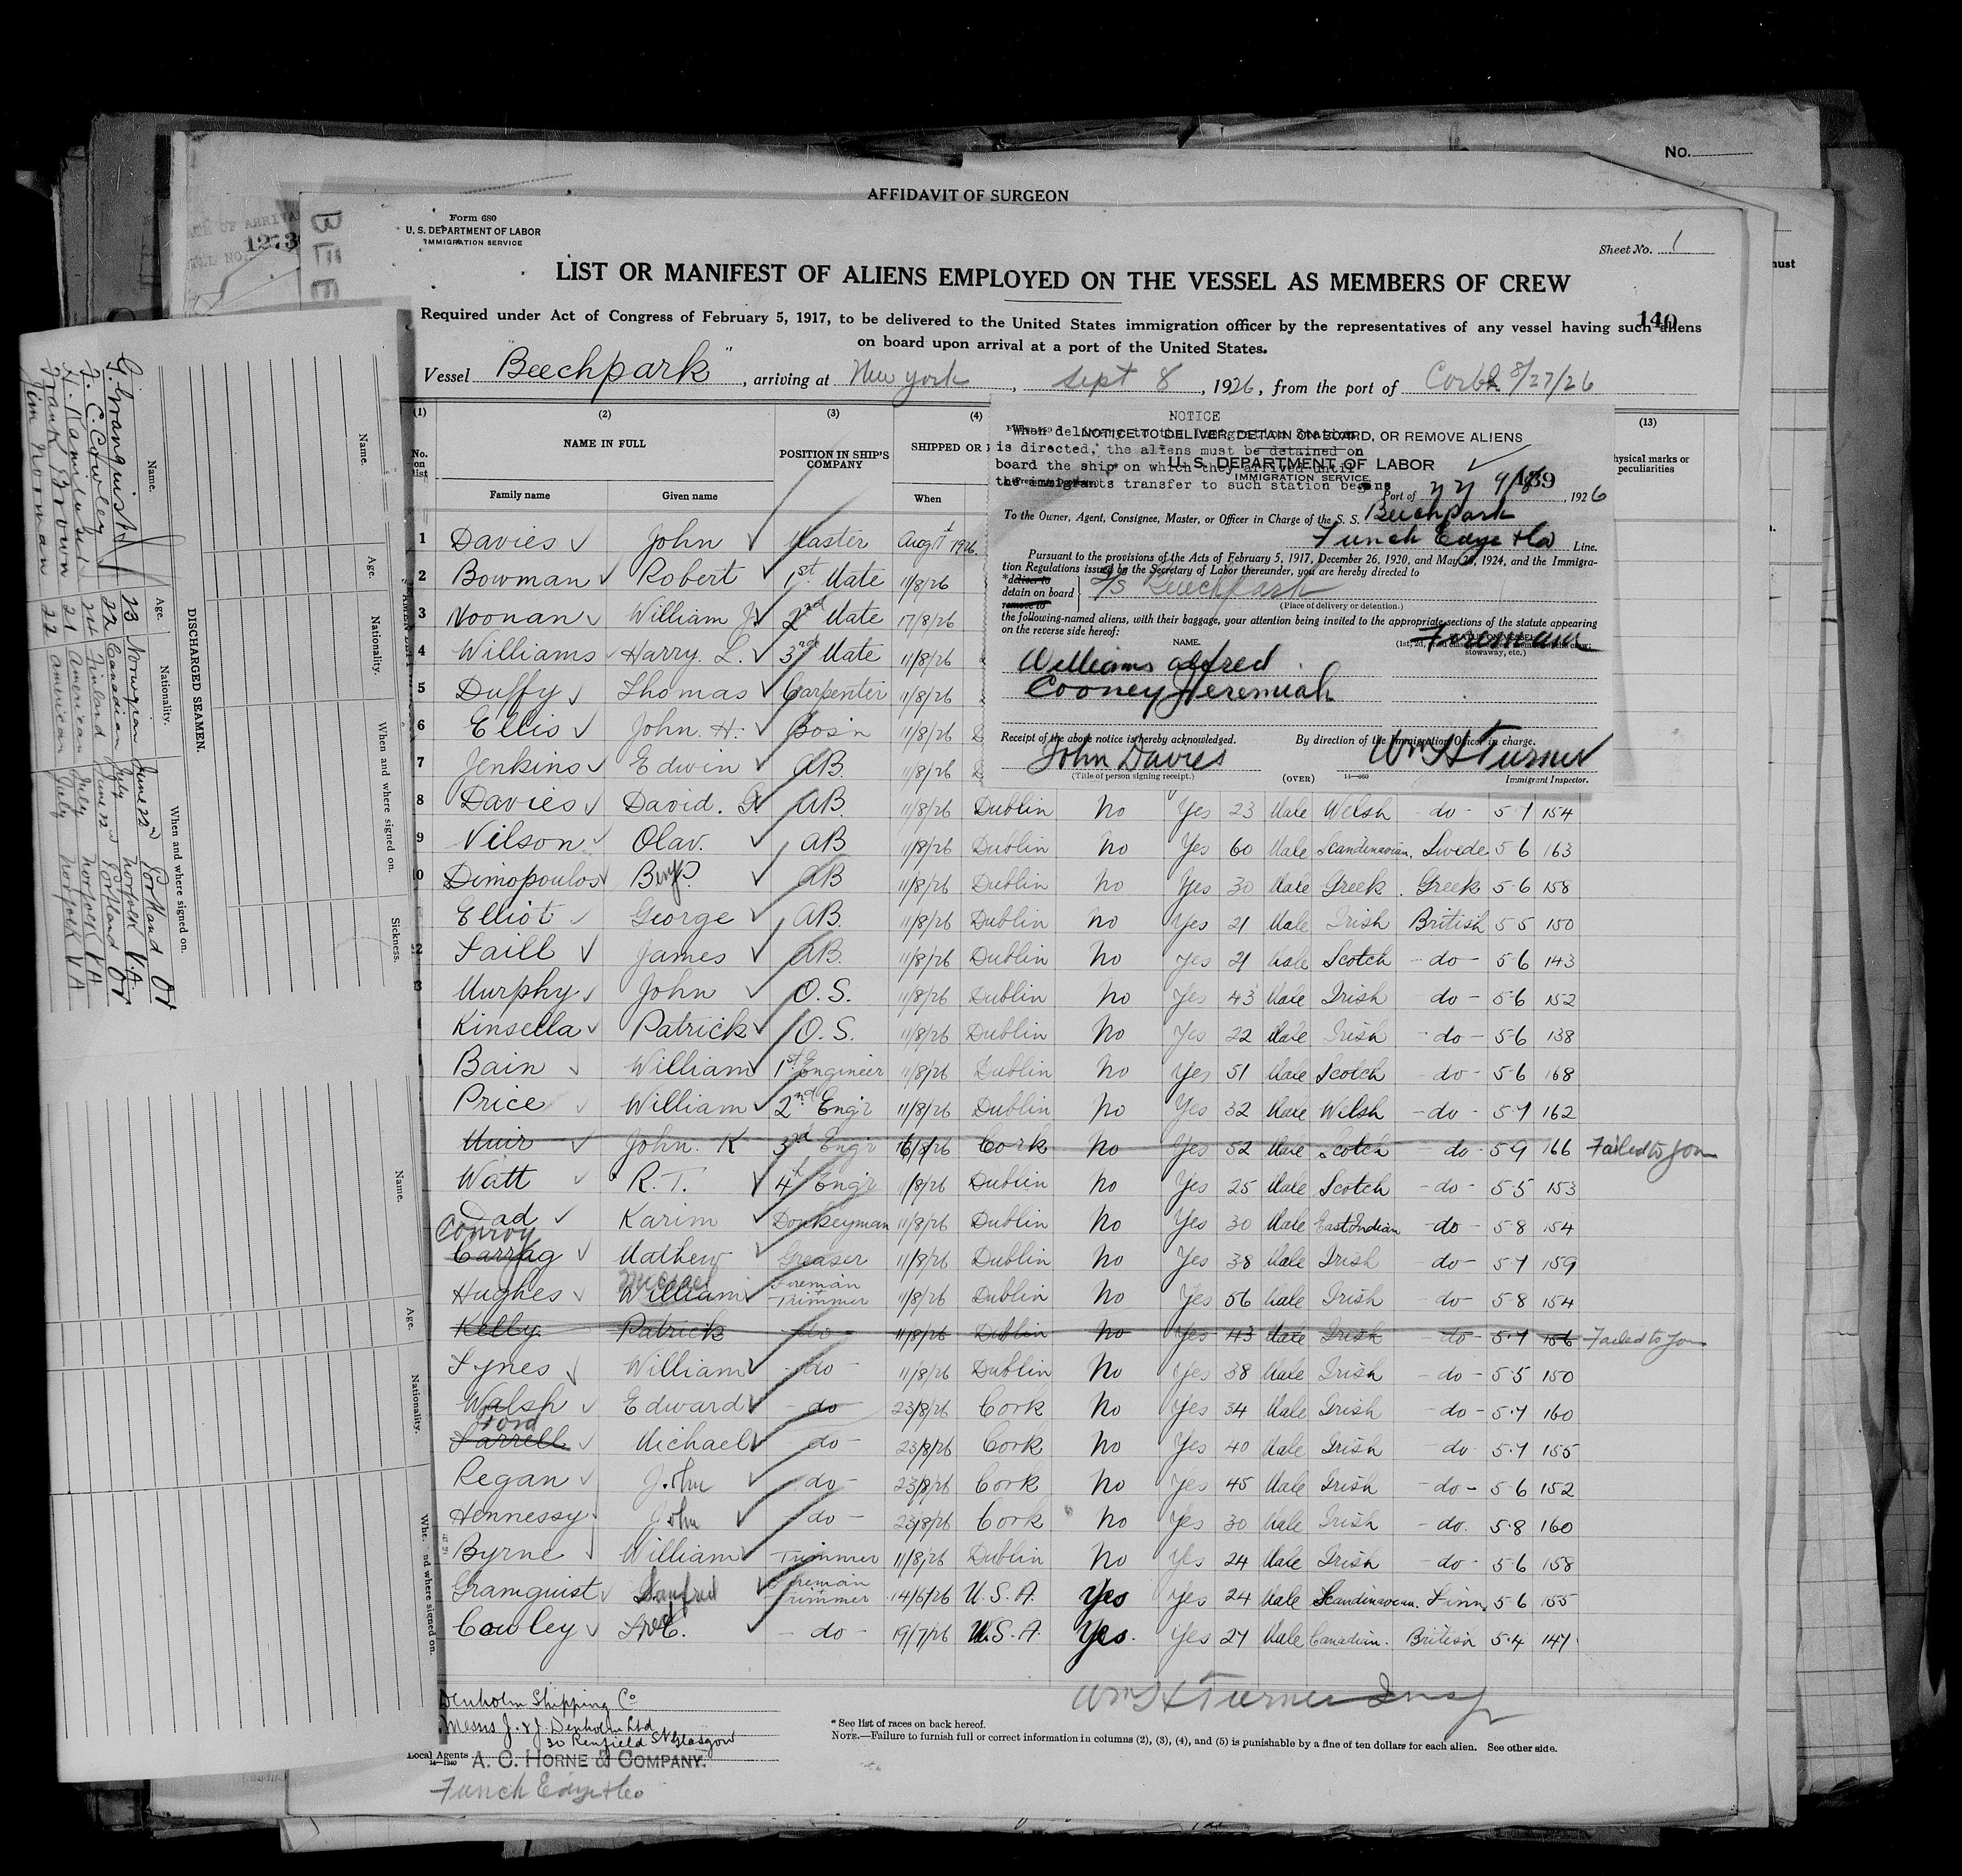 No.
AFFIDAVIT OF SURGEON
1273
Form 680
U. S. DEPARTMENT OF LABOR
IMMIGRATION SERVICE
Sheet No. 1
LIST OR MANIFEST OF ALIENS EMPLOYED ON THE VESSEL AS MEMBERS OF CREW
140
Required under Act of Congress of February 5, 1917, to be delivered to the United States immigration officer by the representatives of any vessel having such aliens
on board upon arrival at a port of the United States.
Vessel "Beechpark", arriving at New York, Sept 8, 1926, from the port of 8/27/26
(1) (2) (3) (4) (13)
No. on list NAME IN FULL POSITION IN SHIP'S COMPANY SHIPPED OR
Family name Given name When
NOTICE
When delivery to the Immigration Station
is directed, the aliens must be detained on
board the ship on which they arrived until
the immigrants transfer to such station begins
NOTICE TO DELIVER, DETAIN ON BOARD, OR REMOVE ALIENS
U. S. DEPARTMENT OF LABOR
IMMIGRATION SERVICE
139
Port of NY 9/8, 1926
To the Owner, Agent, Consignee, Master, or Officer in Charge of the S. S. Beechpark
Funch Edye & Co Line.
Pursuant to the provisions of the Acts of February 5, 1917, December 26, 1920, and May 26, 1924, and the Immigra-
tion Regulations issued by the Secretary of Labor thereunder, you are hereby directed to
*deliver to
detain on board
remove to
S/S Beechpark
(Place of delivery or detention.)
the following-named aliens, with their baggage, your attention being invited to the appropriate sections of the statute appearing
on the reverse side hereof:
NAME.
Williams Alfred Fireman
Cooney Jeremiah
Receipt of the above notice is hereby acknowledged. By direction of the Immigration Officer in charge.
John Davies Wm H Turner
(Title of person signing receipt.) (OVER) Immigrant Inspector.
1 Davies John Master Aug 1926
2 Bowman Robert 1st Mate 11/8/26
3 Noonan William J. 2nd Mate 17/8/26
4 Williams Harry L. 3rd Mate 11/8/26
5 Duffy Thomas Carpenter 11/8/26
6 Ellis John H. Bos'n 11/8/26
7 Jenkins Edwin AB. 11/8/26
8 Davies David. G AB. 11/8/26 Dublin No Yes 23 Male Welsh -do- 5 7 154
9 Nilson Olav. AB 11/8/26 Dublin No Yes 60 Male Scandinavian. Swede 5 6 163
Dimopoulos AB 11/8/26 Dublin No Yes 30 Male Greek. Greek 5 6 158
Elliot George AB. 11/8/26 Dublin No Yes 21 Male Irish British 5 5 150
Faill James AB. 11/8/26 Dublin No Yes 21 Male Scotch -do- 5 6 143
Murphy John O. S. 11/8/26 Dublin No Yes 43 Male Irish -do- 5 6 152
Kinsella Patrick O. S. 11/8/26 Dublin No Yes 22 Male Irish -do- 5 6 138
Bain William 1st Engineer 11/8/26 Dublin No Yes 51 Male Scotch -do- 5 6 168
Price William 2nd Eng'r 11/8/26 Dublin No Yes 32 Male Welsh -do- 5 7 162
Muir John. K 3rd Eng'r 16/8/26 Cork No Yes 52 Male Scotch do 5 9 166 Failed to Join
Watt R. T. 4 Eng'r 11/8/26 Dublin No Yes 25 Male Scotch -do- 5 5 153
Dad Karim Donkeyman 11/8/26 Dublin No Yes 30 Male East Indian -do- 5 8 154
Conroy
Carrag Mathew Greaser 11/8/26 Dublin No Yes 38 Male Irish -do- 5 7 159
Michael
Hughes William Fireman Trimmer 11/8/26 Dublin No Yes 56 Male Irish -do 5 8 154
Kelly Patrick do 11/8/26 Dublin No Yes 43 Male Irish do 5 7 156 Failed to Join
Fynes William -do- 11/8/26 Dublin No Yes 38 Male Irish -do- 5 5 150
Walsh Edward -do- 23/8/26 Cork No Yes 34 Male Irish -do- 5 7 160
Ford
Farrell Michael do- 23/8/26 Cork No Yes 40 Male Irish do 5 7 155
Regan John do- 23/8/26 Cork No Yes 45 Male Irish -do- 5 6 152
Hennessy John do- 23/8/26 Cork No Yes 30 Male Irish -do. 5 8 160
Byrne William Trimmer 11/8/26 Dublin No Yes 24 Male Irish -do- 5 6 158
Granquist Fireman Trimmer 14/6/26 U. S. A. Yes Yes 24 Male Scandinavian. Finn. 5 6 155
Cowley -do- 19/7/26 U. S. A. Yes. Yes 27 Male Canadian. British 5.4 147
Wm H Turner Insp
Denholm Shipping Co
Messrs J. & J. Denholm Ltd
30 Renfield St Glasgow
Local Agents A. C. HORNE & COMPANY.
Funch Edye & Co
* See list of races on back hereof.
NOTE.—Failure to furnish full or correct information in columns (2), (3), (4), and (5) is punishable by a fine of ten dollars for each alien. See other side.
DISCHARGED SEAMEN.
Name. Age. Nationality. When and where signed on.
G. Granquist 23 Norwegian June 22nd Portland Or
F. C. Cowley 22 Canadian July Norfolk VA
24 Finland June 22nd Portland Or
Frank Brown 21 American July Norfolk VA
Jim Norman 22 American July Norfolk VA
Name. Age. Nationality. When and where signed on. Sickness.
Name. Age. Nationality. When and where signed on.